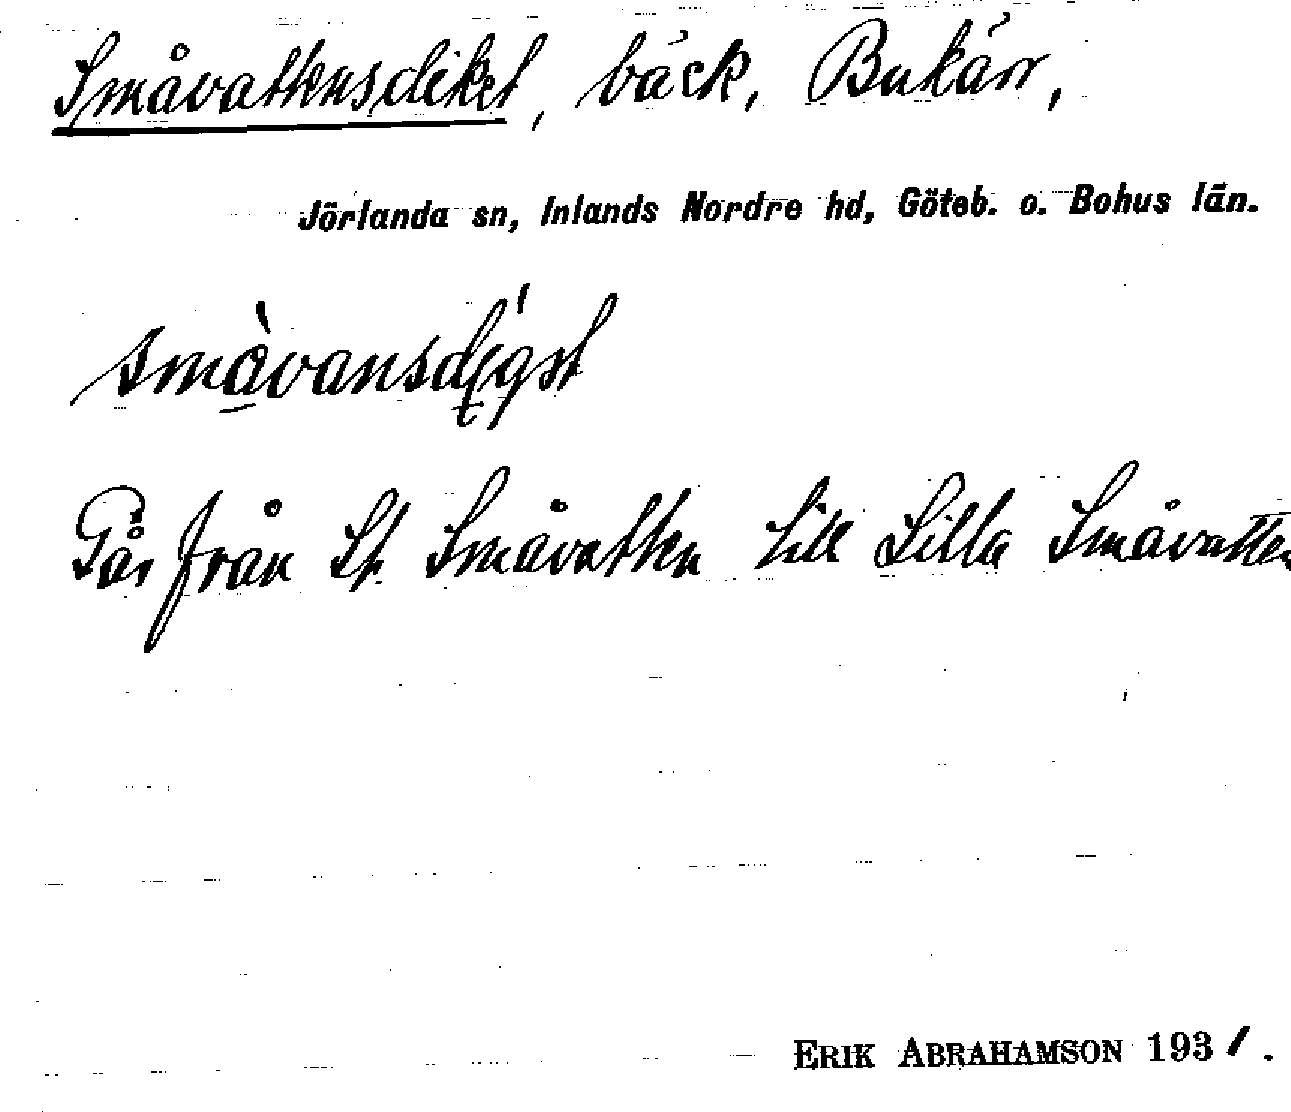 Småvattensdiket, bäck, Bukärr,
Jörlanda sn, Inlands Nordre hd, Göteb. o. Bohus län.
Går från St. Småvatten till Lilla Småvatten
ERIK ABRAHAMSON 1931.